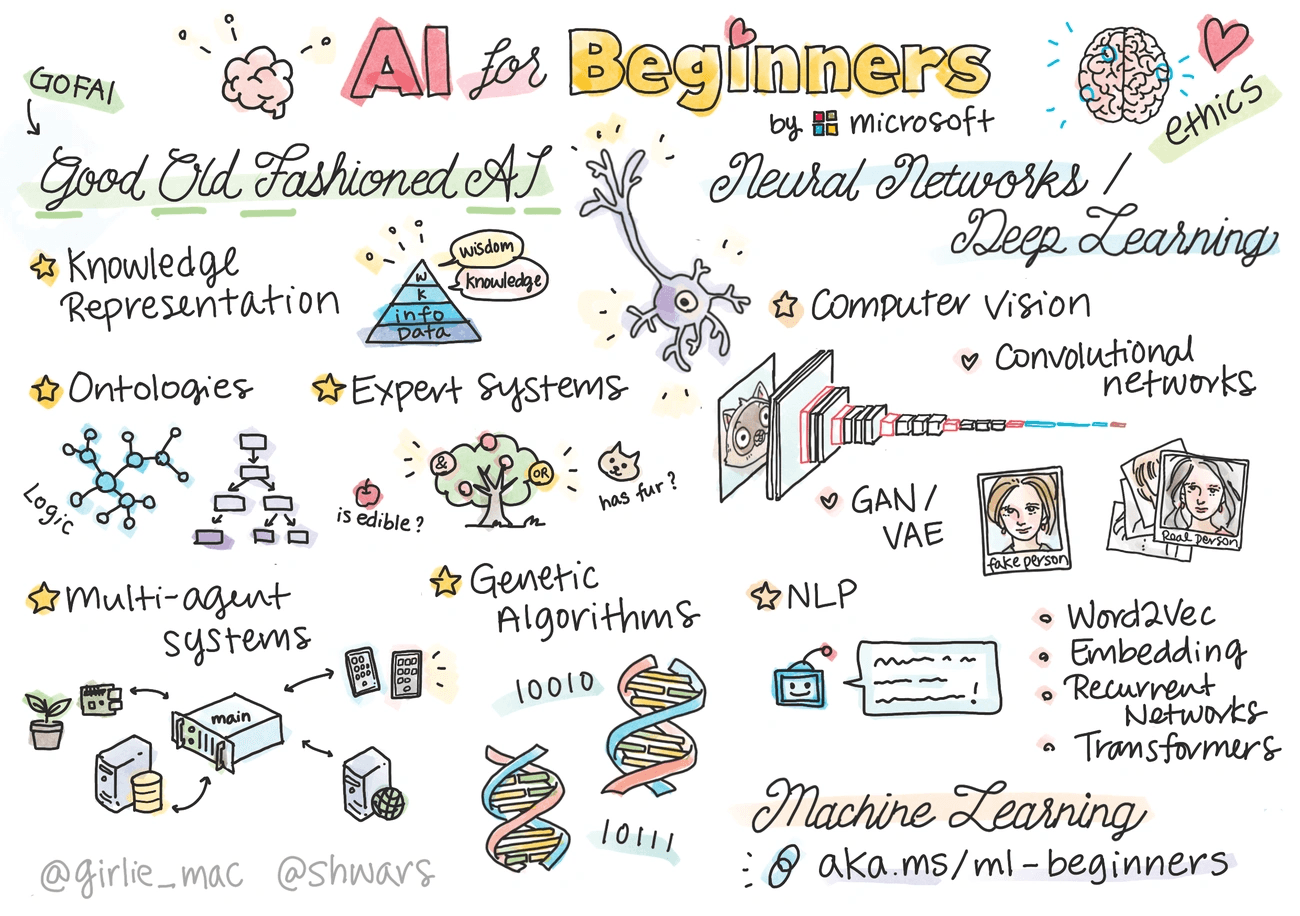 AI for Beginners
by microsoft
GOFAI
ethics
Good Old Fashioned AI
Knowledge
Representation
wisdom
knowledge
W
K
info
Data
Ontologies
Logic
Expert systems
&
OR
is edible?
has fur?
Multi-agent
systems
main
Genetic
Algorithms
10010
10111
Neural Networks /
Deep Learning
Computer Vision
Convolutional
networks
GAN /
VAE
fake person
Real person
NLP
!
Word2Vec
Embedding
Recurrent
Networks
Transformers
Machine Learning
aka.ms/ml-beginners
@girlie_mac @shwars